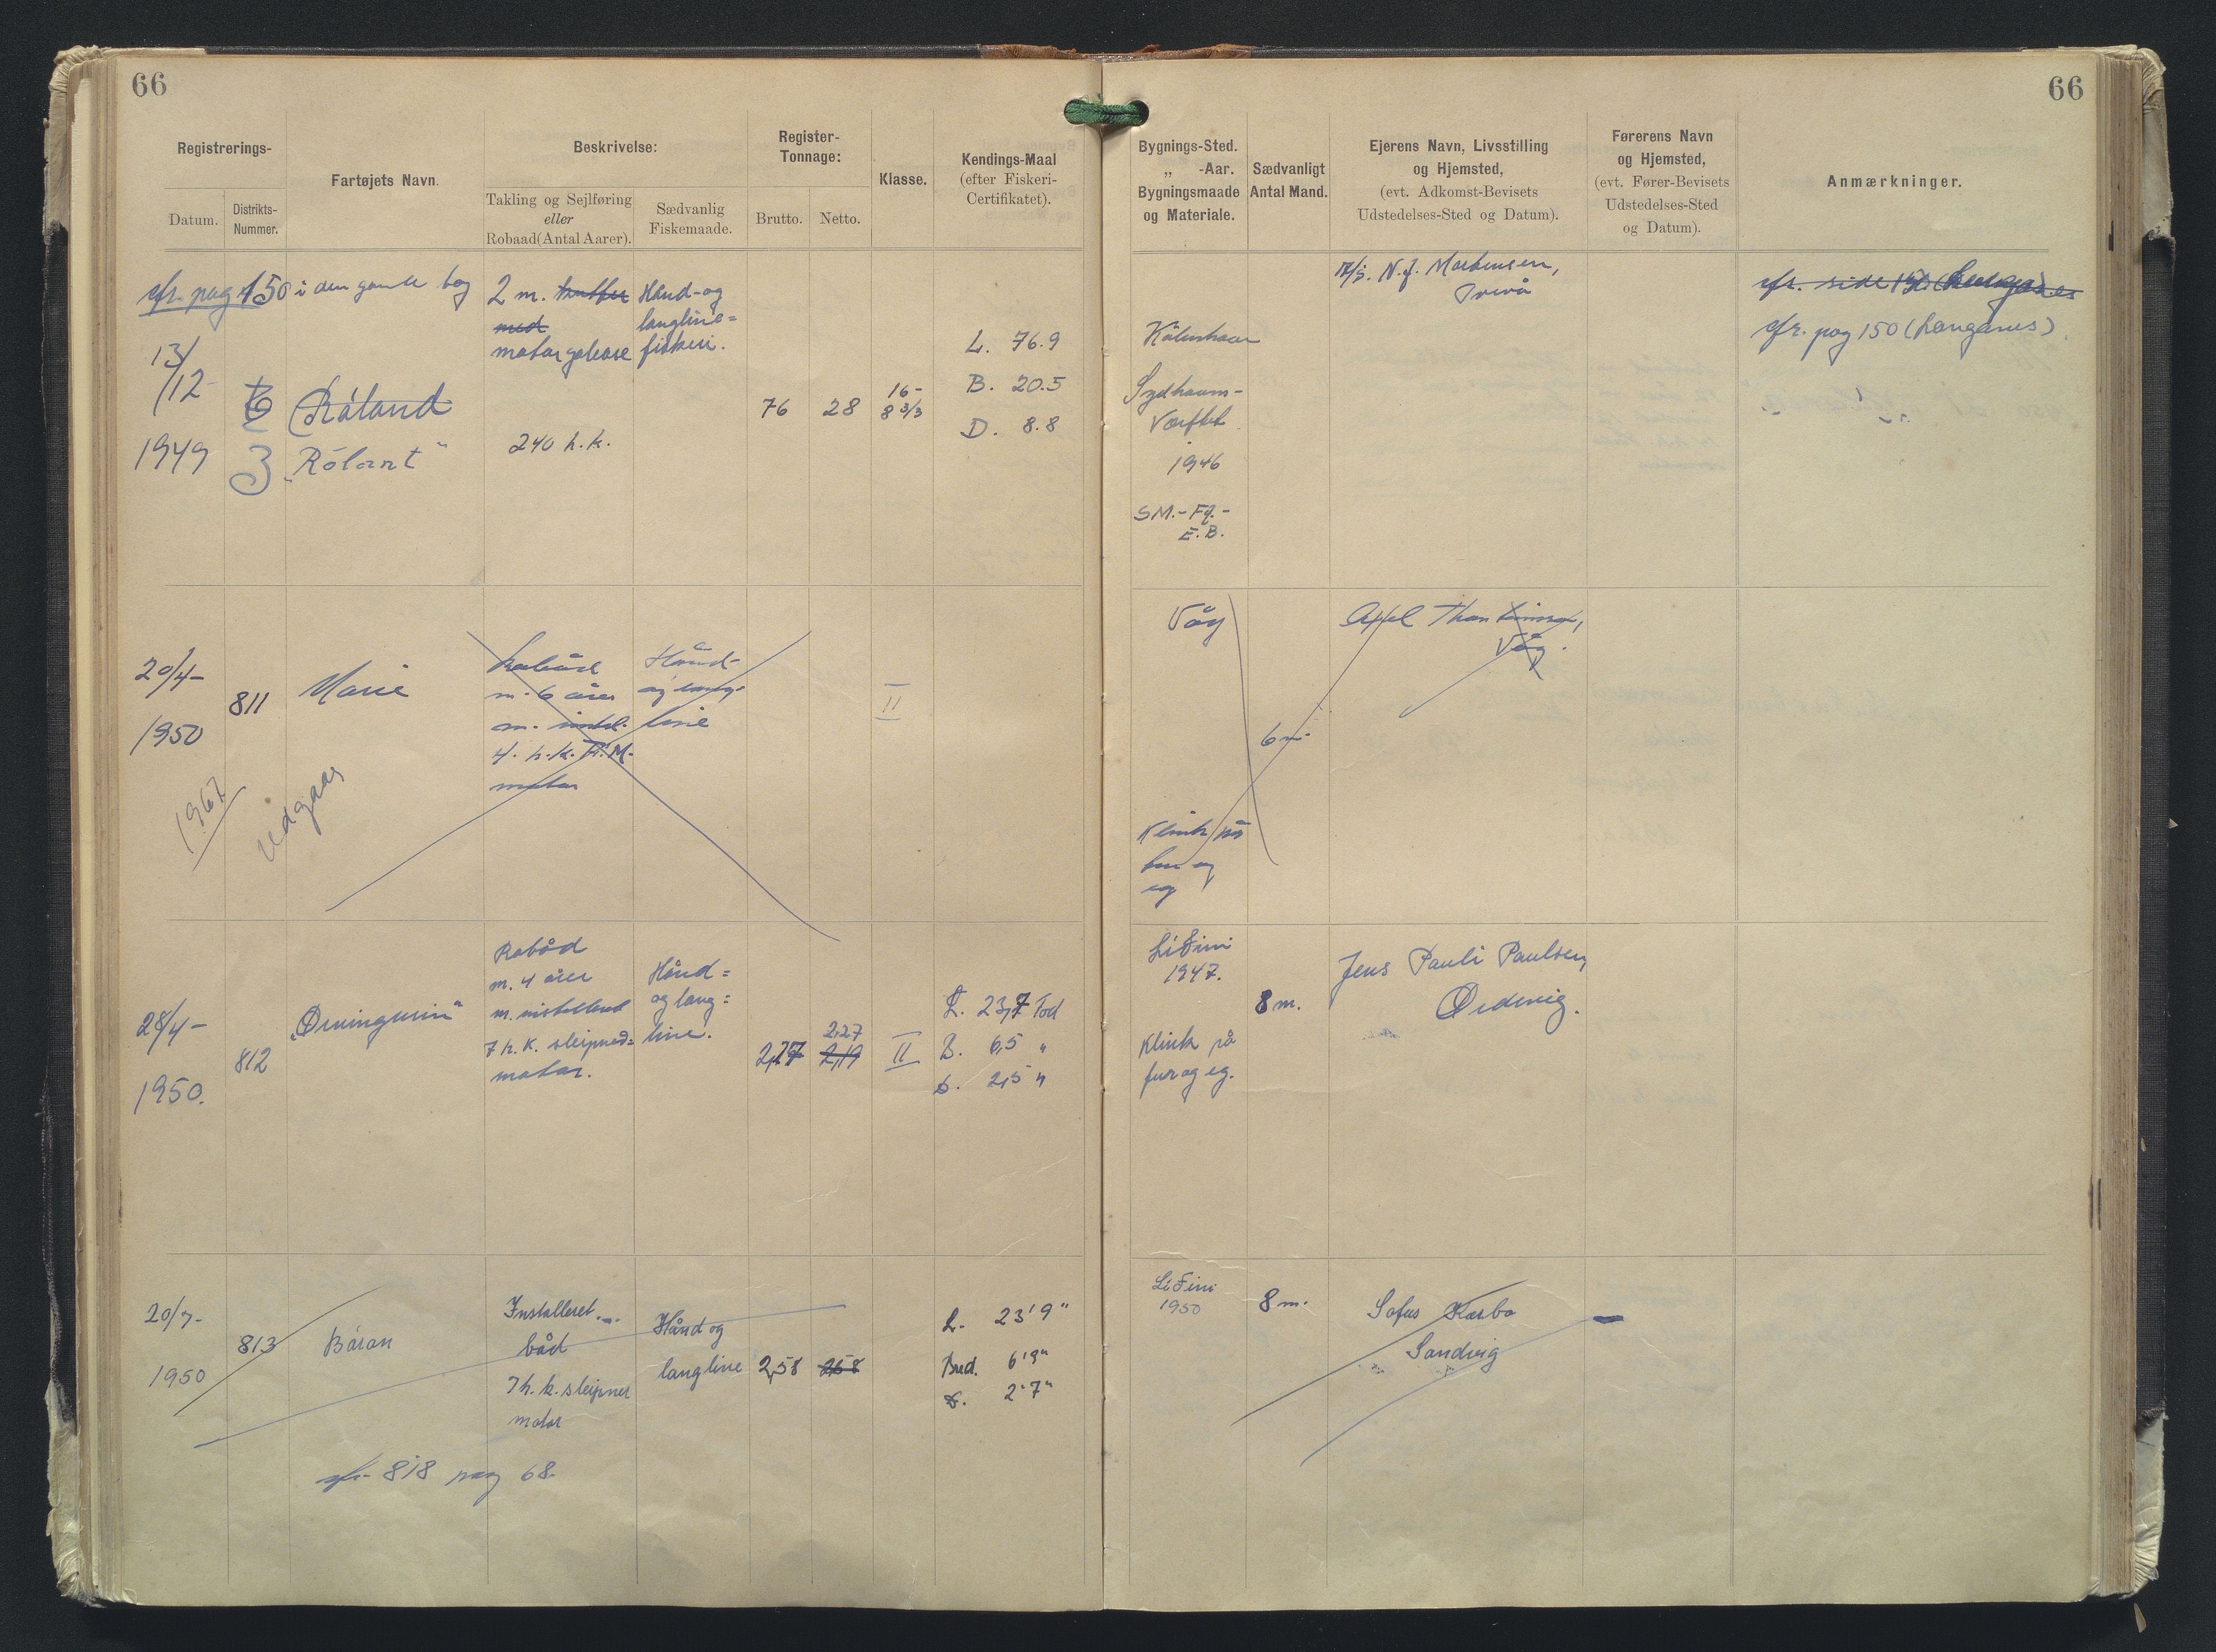 66
66
Registrerings-
Datum.
Distrikts-
Nummer.
Fartøjets Navn.
Beskrivelse:
Takling og Sejlføring
eller
Robaad (Antal Aarer).
Sædvanlig
Fiskemaade.
Register-
Tonnage:
Brutto.
Netto.
Klasse.
Kendings-Maal
(efter Fiskeri-
Certifikatet).
Bygnings-Sted.
„ -Aar.
Bygningsmaade
og Materiale.
Sædvanligt
Antal Mand.
Ejerens Navn, Livsstilling
og Hjemsted,
(evt. Adkomst-Bevisets
Udstedelses-Sted og Datum).
Førerens Navn
og Hjemsted,
(evt. Fører-Bevisets
Udstedelses-Sted
og Datum).
Anmærkninger.
cfr. pag 150 i den gamle bog
13/12
1949
6
3
Róland
"Rólant"
2 m. kutter
med
motorgalease
240 h.k.
Hånd- og
langline=
fiskeri.
76
28
16-
L. 76.9
B. 20.5
D. 8.8
København
Sydhavns-
Værftet
1946
SM.-Fg.-
E.B.
N.J. Mortensen,
Tverå
cfr. side 150
cfr. pag 150 (Langanes)
20/4-
1950
1967
Udgaar
811
Marie
Robåd
m. 6 årer
m. instal.
4 h.k. F.M.
motor
Hånd-
og lang-
line
II
Våg
Klink på
og
eg
6 m.
Axel Thomsen,
Våg.
28/4-
1950.
812
Robåd
m. 4 årer
m. installeret
7 h.k. sleipner=
motor.
Hånd=
og lang=
line.
2,27
2,27
2,19
II
L. 23,7 Fod
B. 6,5 "
D. 2,5 "
Lidini
1947.
Klink på
fur og eg.
8 m.
Jens Pauli Paulsen,
Ørdevig.
20/7-
1950
813
Báran
Installeret
båd
7 h.k. sleipner
motor
Hånd og
langline
2,58
2,58
L. 23'9"
Bred. 6'9"
D. 2'7"
Lidini
1950
8 m.
Sofus Karbo
Sandvig
cfr 818 pag 68.